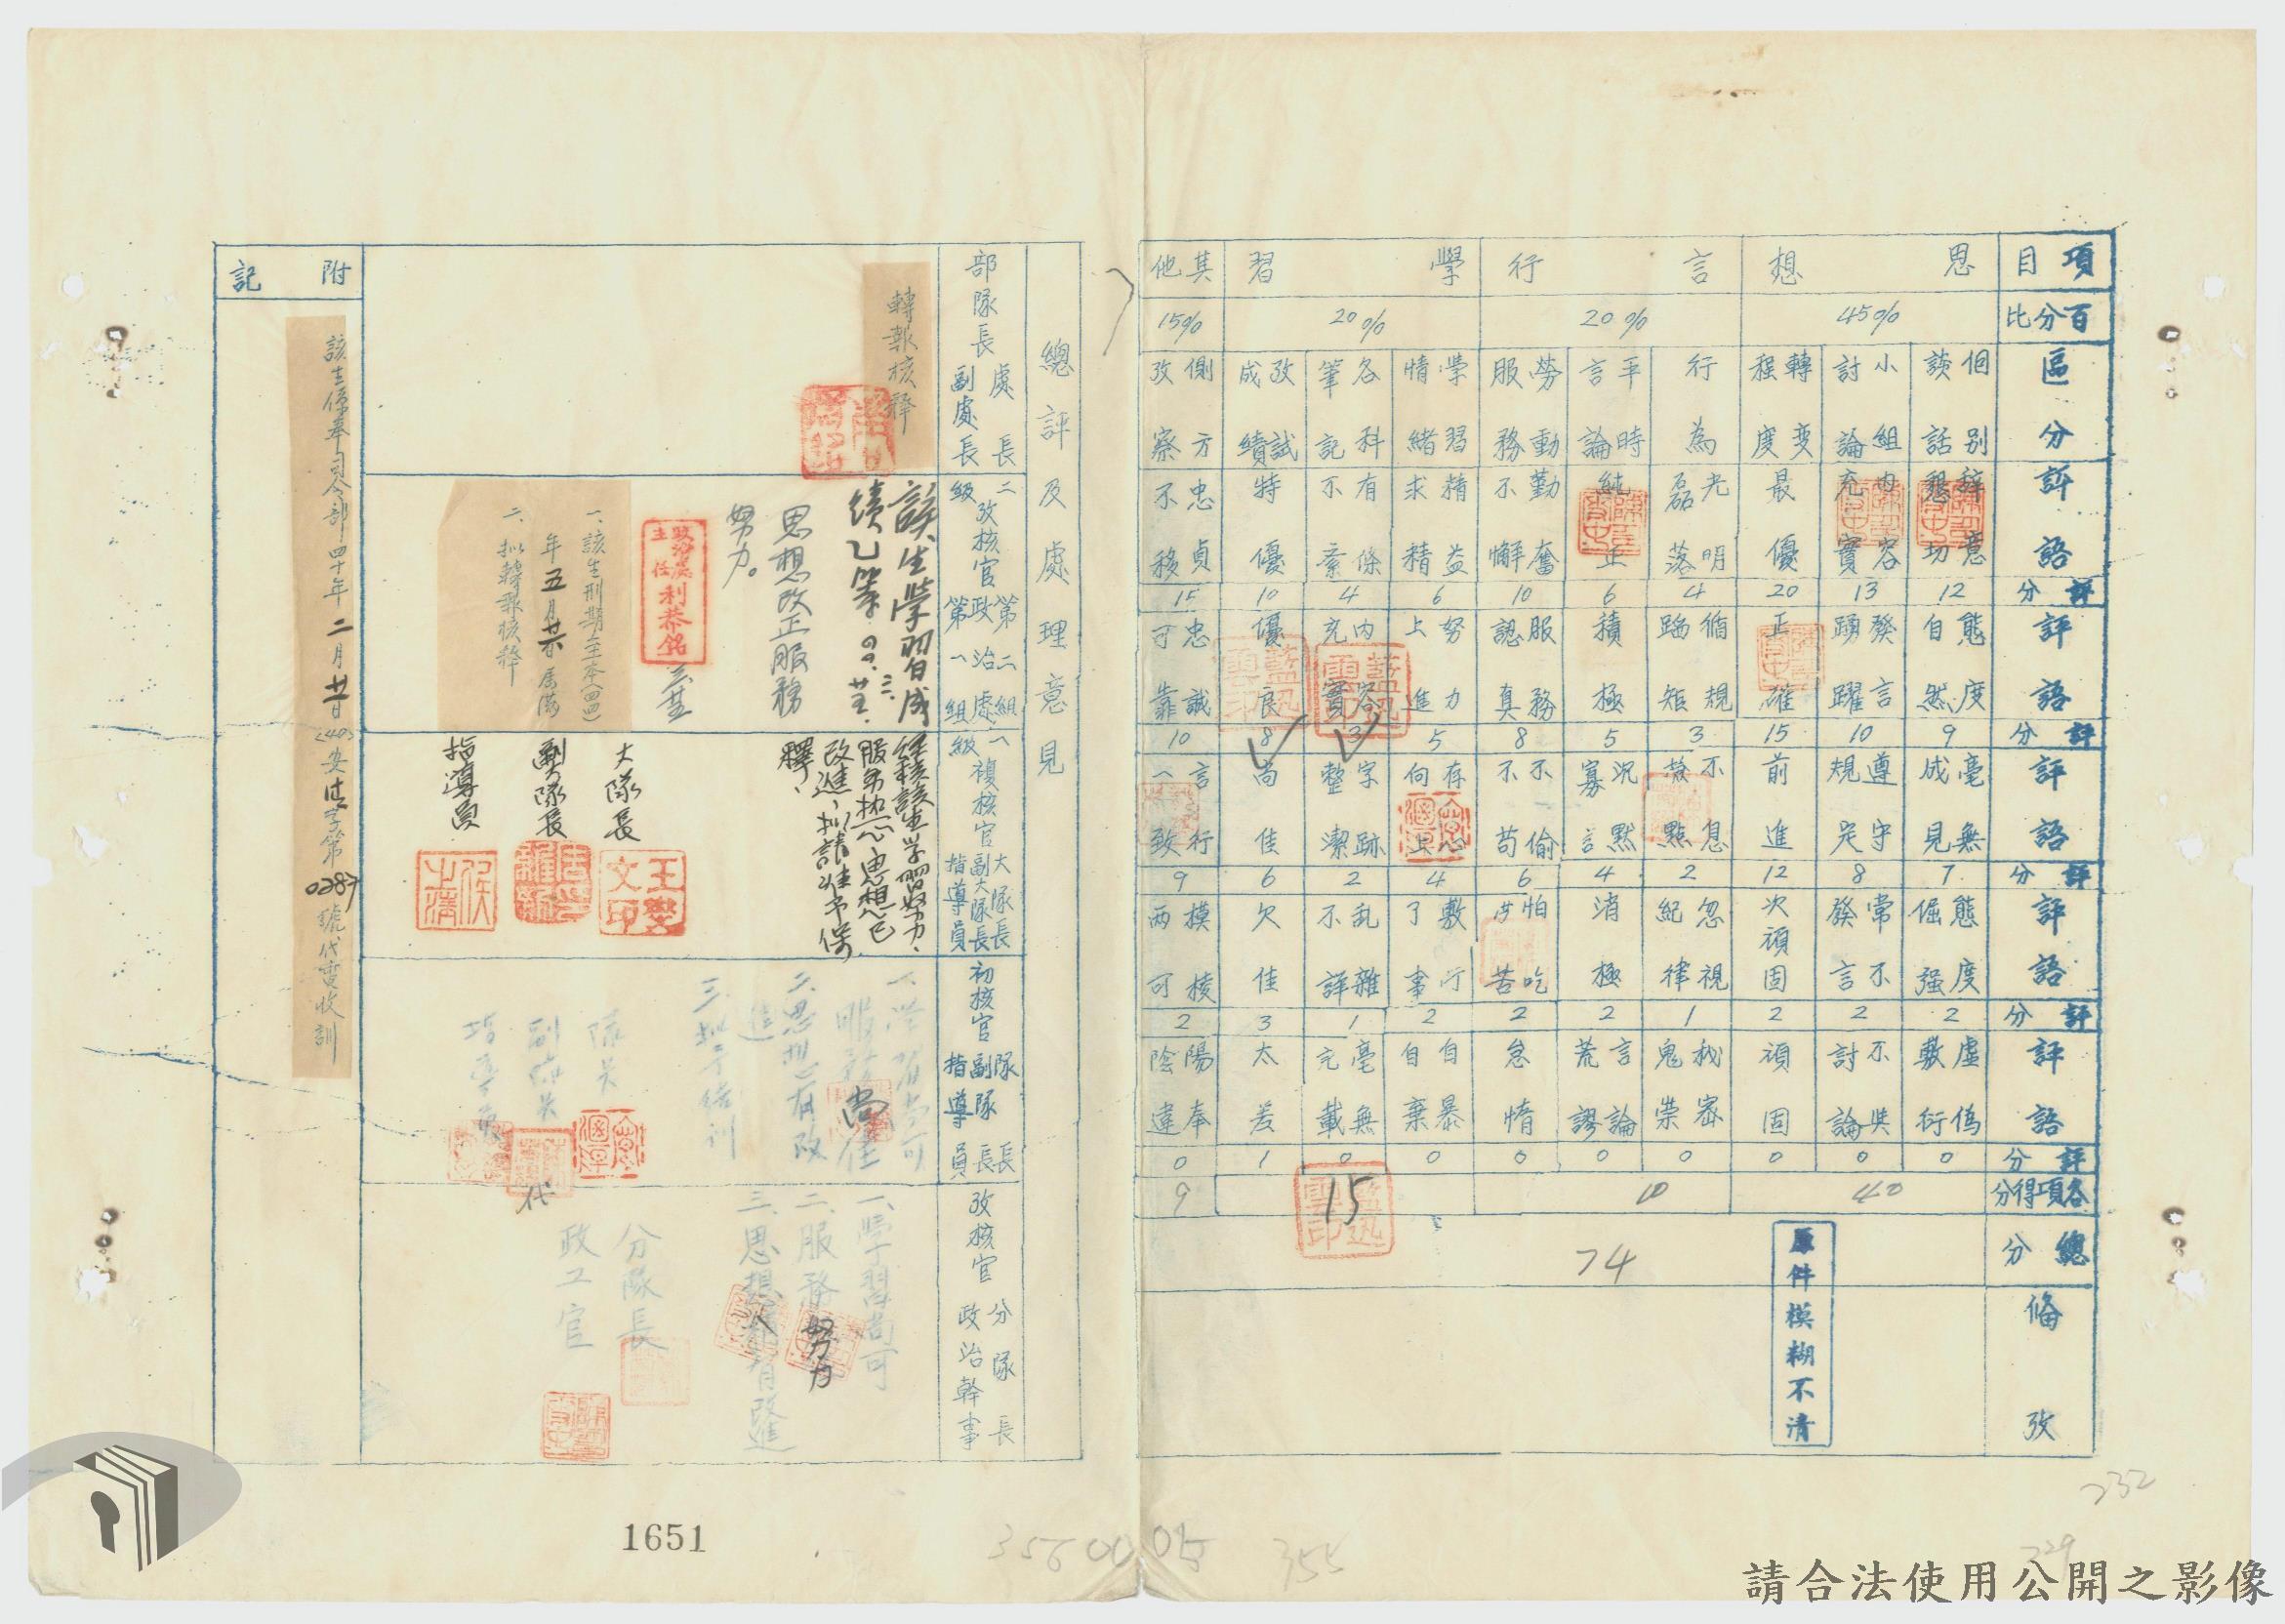 項目 思想 言行 學習 其他
百分比 45% 20% 20% 15%
區分 個別談話 小組討論 轉變程度 行為 平時言論 勞動服務 學習情緒 各科筆記 攷試成績 側方攷察
評語 辭意懇切 內容充實 最優 光明磊落 純正 勤奮不懈 精益求精 有條不紊 特優 忠貞不移
評分 12 13 20 4 6 10 6 4 10 15
評語 態度自然 發言踴躍 正確 循規蹈矩 積極 服務認真 努力上進 內容充實 優良 忠誠可靠
評分 9 10 15 3 5 8 5 3 8 10
評語 毫無成見 遵守規定 前進 不息 沉默寡言 不偷不苟 存心向上 字跡整潔 尚佳 言行一致
評分 7 8 12 2 4 6 4 2 6 9
評語 態度倔强 常不發言 次頑固 忽視紀律 消極 怕吃苦 敷衍了事 乱雜不詳 欠佳 模棱兩可
評分 2 2 2 1 2 2 2 1 3 2
評語 虛偽敷衍 不與討論 頑固 言論荒謬 怠惰 自暴自棄 毫無 太差 陽奉陰違
評分 0 0 0 0 0 0 0 0 1 0
各項得分 40 10 15 9
總分 74
備攷
原件模糊不清
總評及處理意見
部隊長 處長 副處長
轉報核釋
二級攷核官 第二組 政治處 第一組
該生學習成
績乙等
思想改正服務
努力。
政治處主任 利恭銘
一、該生刑期至本(四四)
年五月廿 屆滿
二、拟轉報核釋
一級複核官 大隊長 副大隊長 指導員
經核該生学習努力、
服务热心、思想已
改進、拟請准予保
釋、
大隊長
王 文印
副大隊長
指導員
侯
初核官 隊長 副隊長 指導員
一、學習尚可
服務尚佳
二、思想有改
進
三、拟予結訓
隊長
副隊長
代
指導員
攷核官 分隊長 政治幹事
一、學習尚可
二、服務努力
三、思想有改進
分隊長
政工官
附記
該生係奉司令部四十年二月廿日(40)安 字第0287號代電收訓
1651
3560005
355
232
229
請合法使用公開之影像